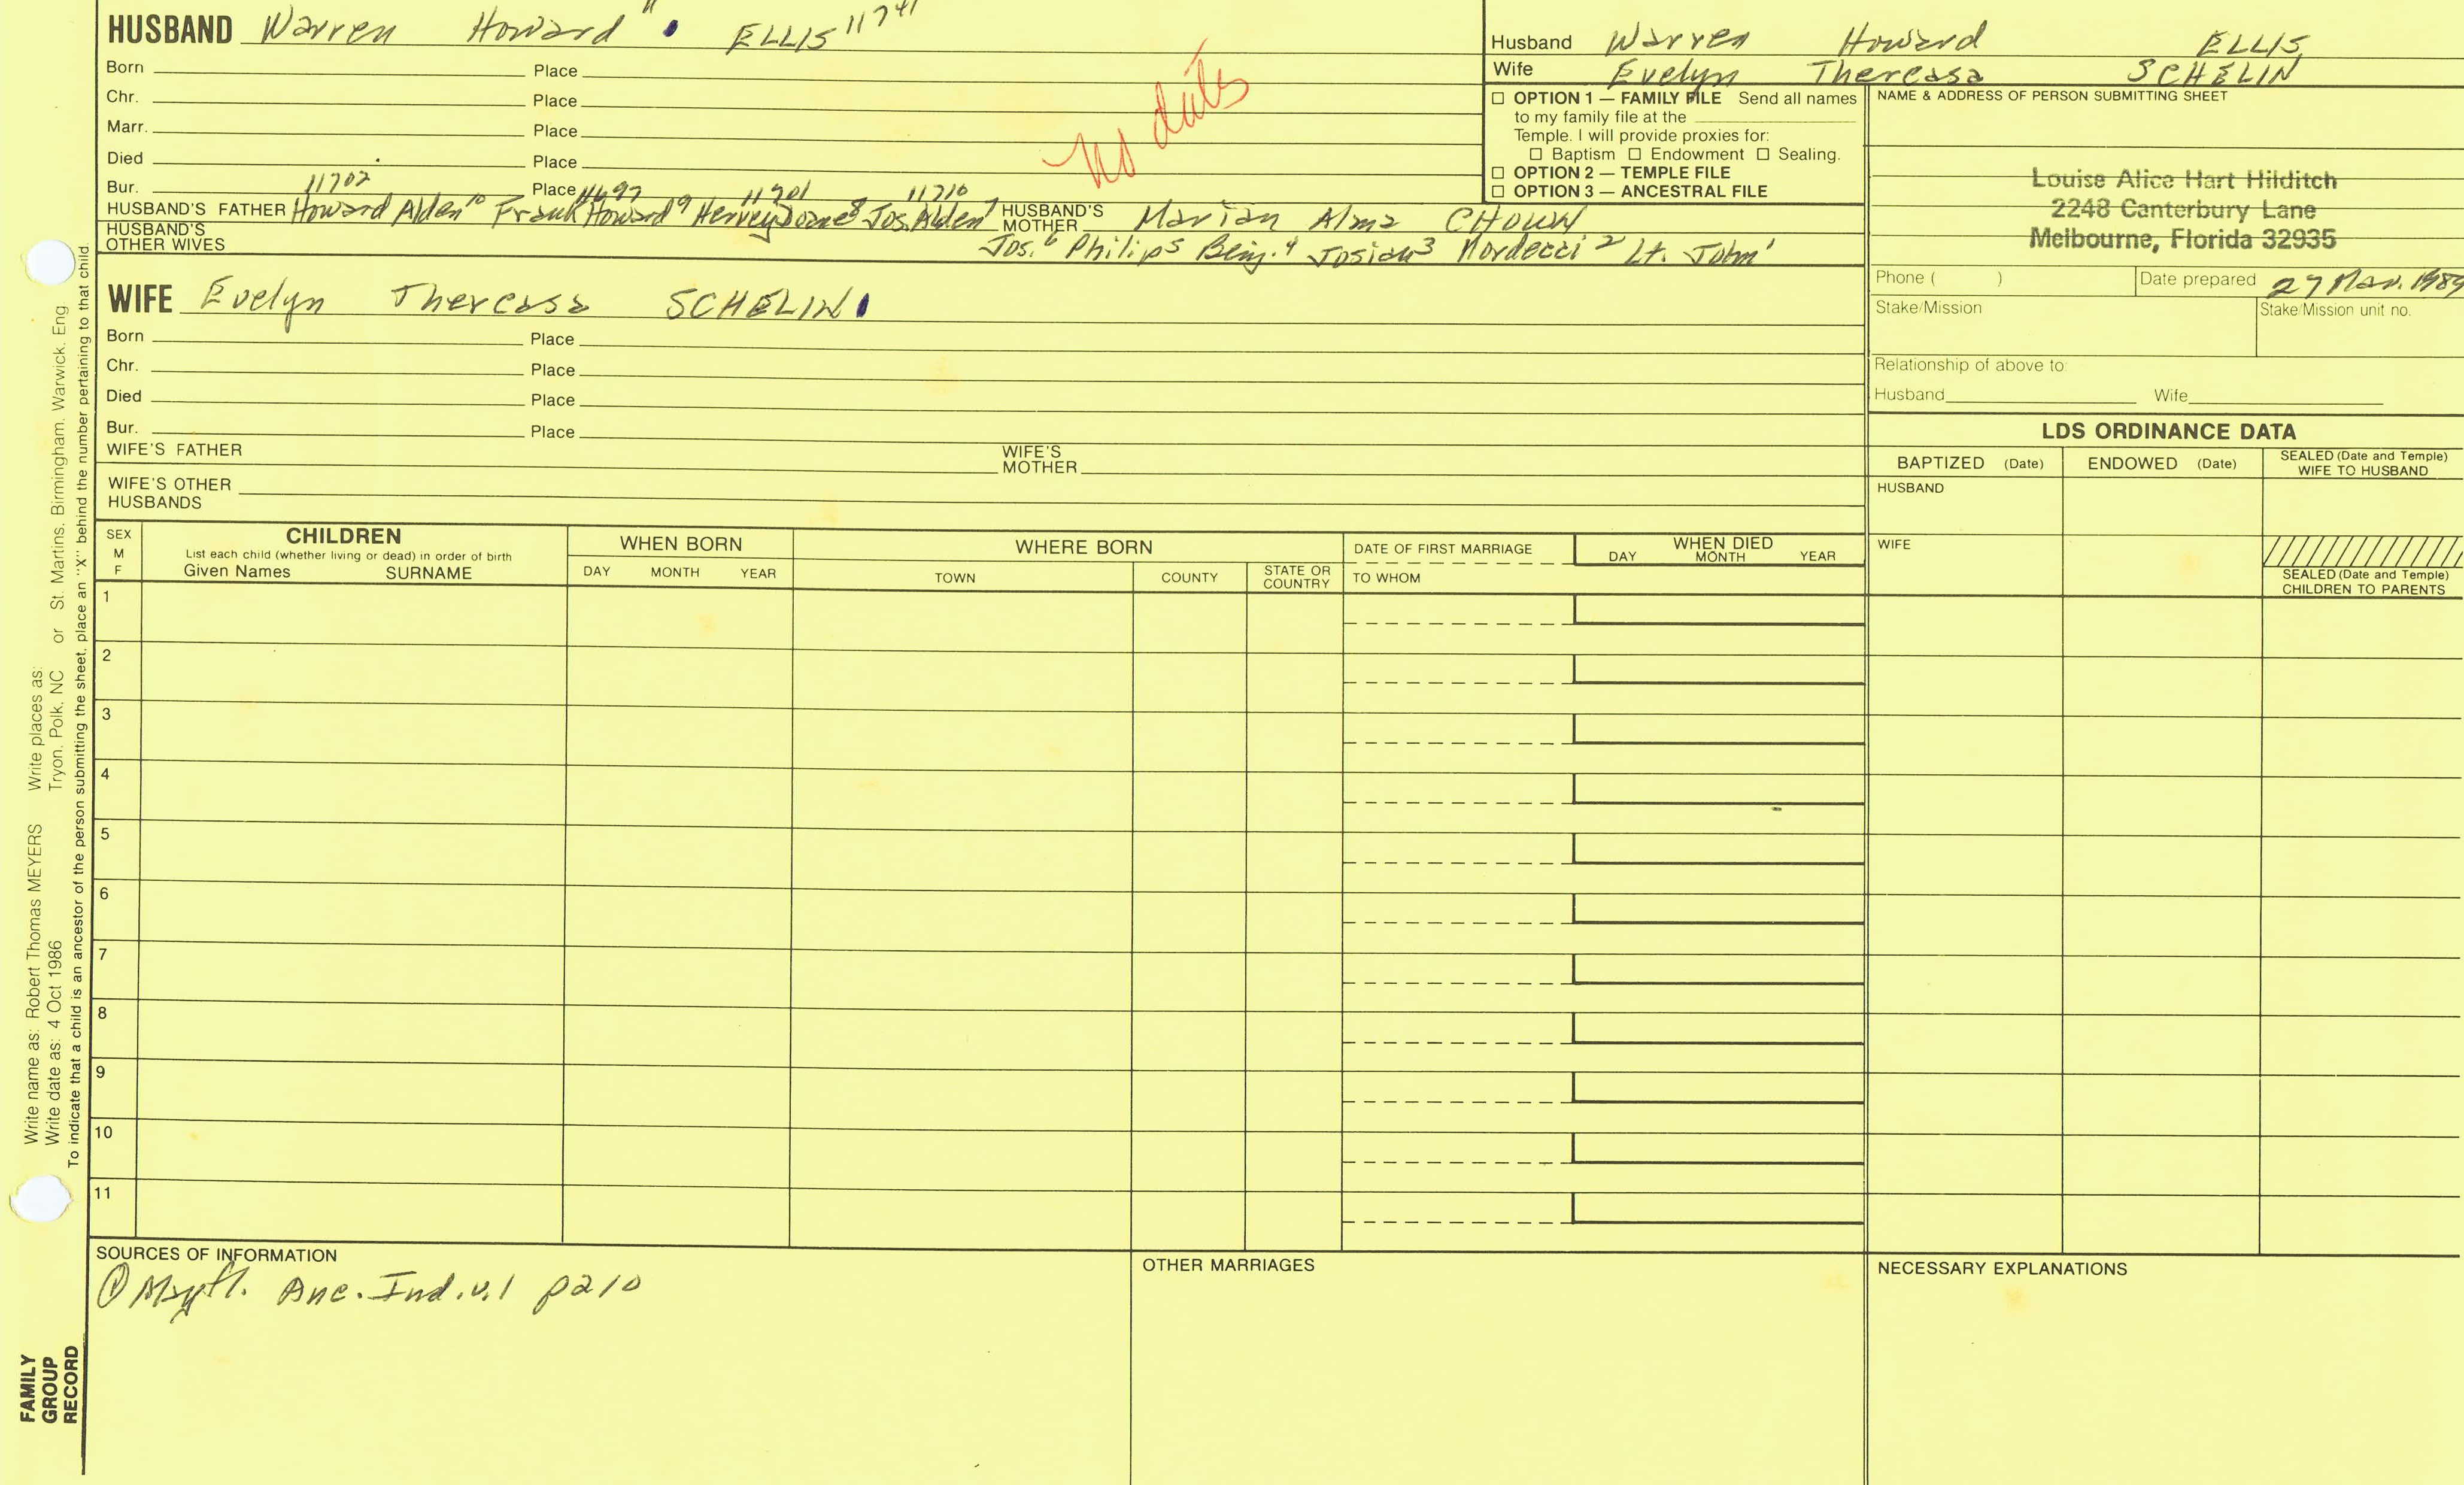 HUSBAND Warren Howard 11 ELLIS 11741
Born Place
Chr. Place
Marr. Place
Died Place
no dates
11702 11697 11701 11710
Bur. Place
HUSBAND'S FATHER Howard Alden 10 Frank Howard 9 Hervey Doane 8 Jos. Alden 7 HUSBAND'S MOTHER Marian Alma CHOWN
HUSBAND'S OTHER WIVES Jos. 6 Philip 5 Benj. 4 Josiah 3 Mordecai 2 Lt. John 1
WIFE Evelyn Thereasa SCHELIN
Born Place
Chr. Place
Died Place
Bur. Place
WIFE'S FATHER WIFE'S MOTHER
WIFE'S OTHER HUSBANDS
Husband Warren Howard ELLIS
Wife Evelyn Thereasa SCHELIN
☐ OPTION 1 — FAMILY FILE Send all names
to my family file at the
Temple. I will provide proxies for:
☐ Baptism ☐ Endowment ☐ Sealing.
☐ OPTION 2 — TEMPLE FILE
☐ OPTION 3 — ANCESTRAL FILE
NAME & ADDRESS OF PERSON SUBMITTING SHEET
Louise Alice Hart Hilditch
2248 Canterbury Lane
Melbourne, Florida 32935
Phone ( ) Date prepared 27 Mar. 1989
Stake/Mission Stake/Mission unit no.
Relationship of above to:
Husband Wife
LDS ORDINANCE DATA
BAPTIZED (Date) ENDOWED (Date) SEALED (Date and Temple) WIFE TO HUSBAND
HUSBAND
WIFE
SEALED (Date and Temple)
CHILDREN TO PARENTS
SEX M F
CHILDREN
List each child (whether living or dead) in order of birth
Given Names SURNAME
WHEN BORN
DAY MONTH YEAR
WHERE BORN
TOWN COUNTY STATE OR COUNTRY
DATE OF FIRST MARRIAGE
TO WHOM
WHEN DIED
DAY MONTH YEAR
1
2
3
4
5
6
7
8
9
10
11
SOURCES OF INFORMATION
① Mayfl. Anc. Ind. v.1 p210
OTHER MARRIAGES
NECESSARY EXPLANATIONS
Write name as: Robert Thomas MEYERS Write places as:
Write date as: 4 Oct 1986 Tryon, Polk, NC or St. Martins, Birmingham, Warwick, Eng
To indicate that a child is an ancestor of the person submitting the sheet, place an "X" behind the number pertaining to that child.
FAMILY
GROUP
RECORD